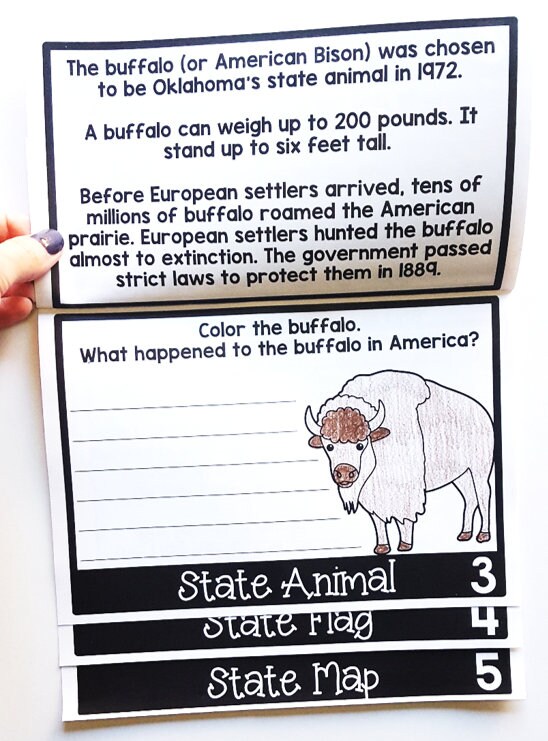 The buffalo (or American Bison) was chosen
to be Oklahoma's state animal in 1972.
A buffalo can weigh up to 200 pounds. It
stand up to six feet tall.
Before European settlers arrived, tens of
millions of buffalo roamed the American
prairie. European settlers hunted the buffalo
almost to extinction. The government passed
strict laws to protect them in 1889.
Color the buffalo.
What happened to the buffalo in America?
State Animal 3
State Flag 4
State Map 5